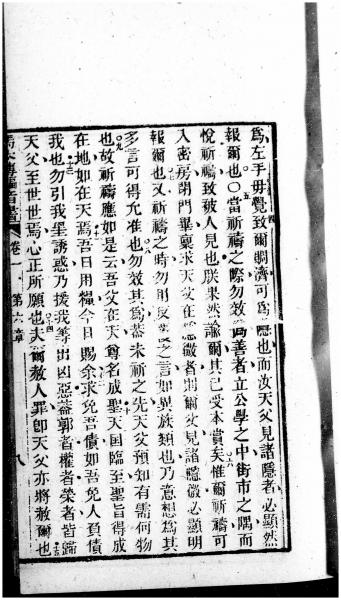 為左手毋覺致爾賙濟可為隱也而汝天父見諸隱者必顯然
報爾也○當祈禱之際勿效偽善者立公學之中街市之隅而
悅祈禱致被人見也朕果然諭爾其已受本賞矣惟爾祈禱可
入密房閉門畢稟求天父在隱微者則爾父見諸隱微必顯明
報爾也又祈禱之時勿用之言如異族類也乃意想為其
多言可得允准也勿效其為蓋未祈之先天父預知有需何物
也故祈禱應如是云吾父在天尊名成聖天國臨至聖旨得成
在地如在天焉吾日用糧今日賜余求免吾債如吾免人負債
我也勿引我等誘惑乃援我等出凶惡蓋郭者權者榮者皆歸
天父至世世焉心正所願也夫爾赦人罪即天父亦將赦爾也
卷一 第六章 八